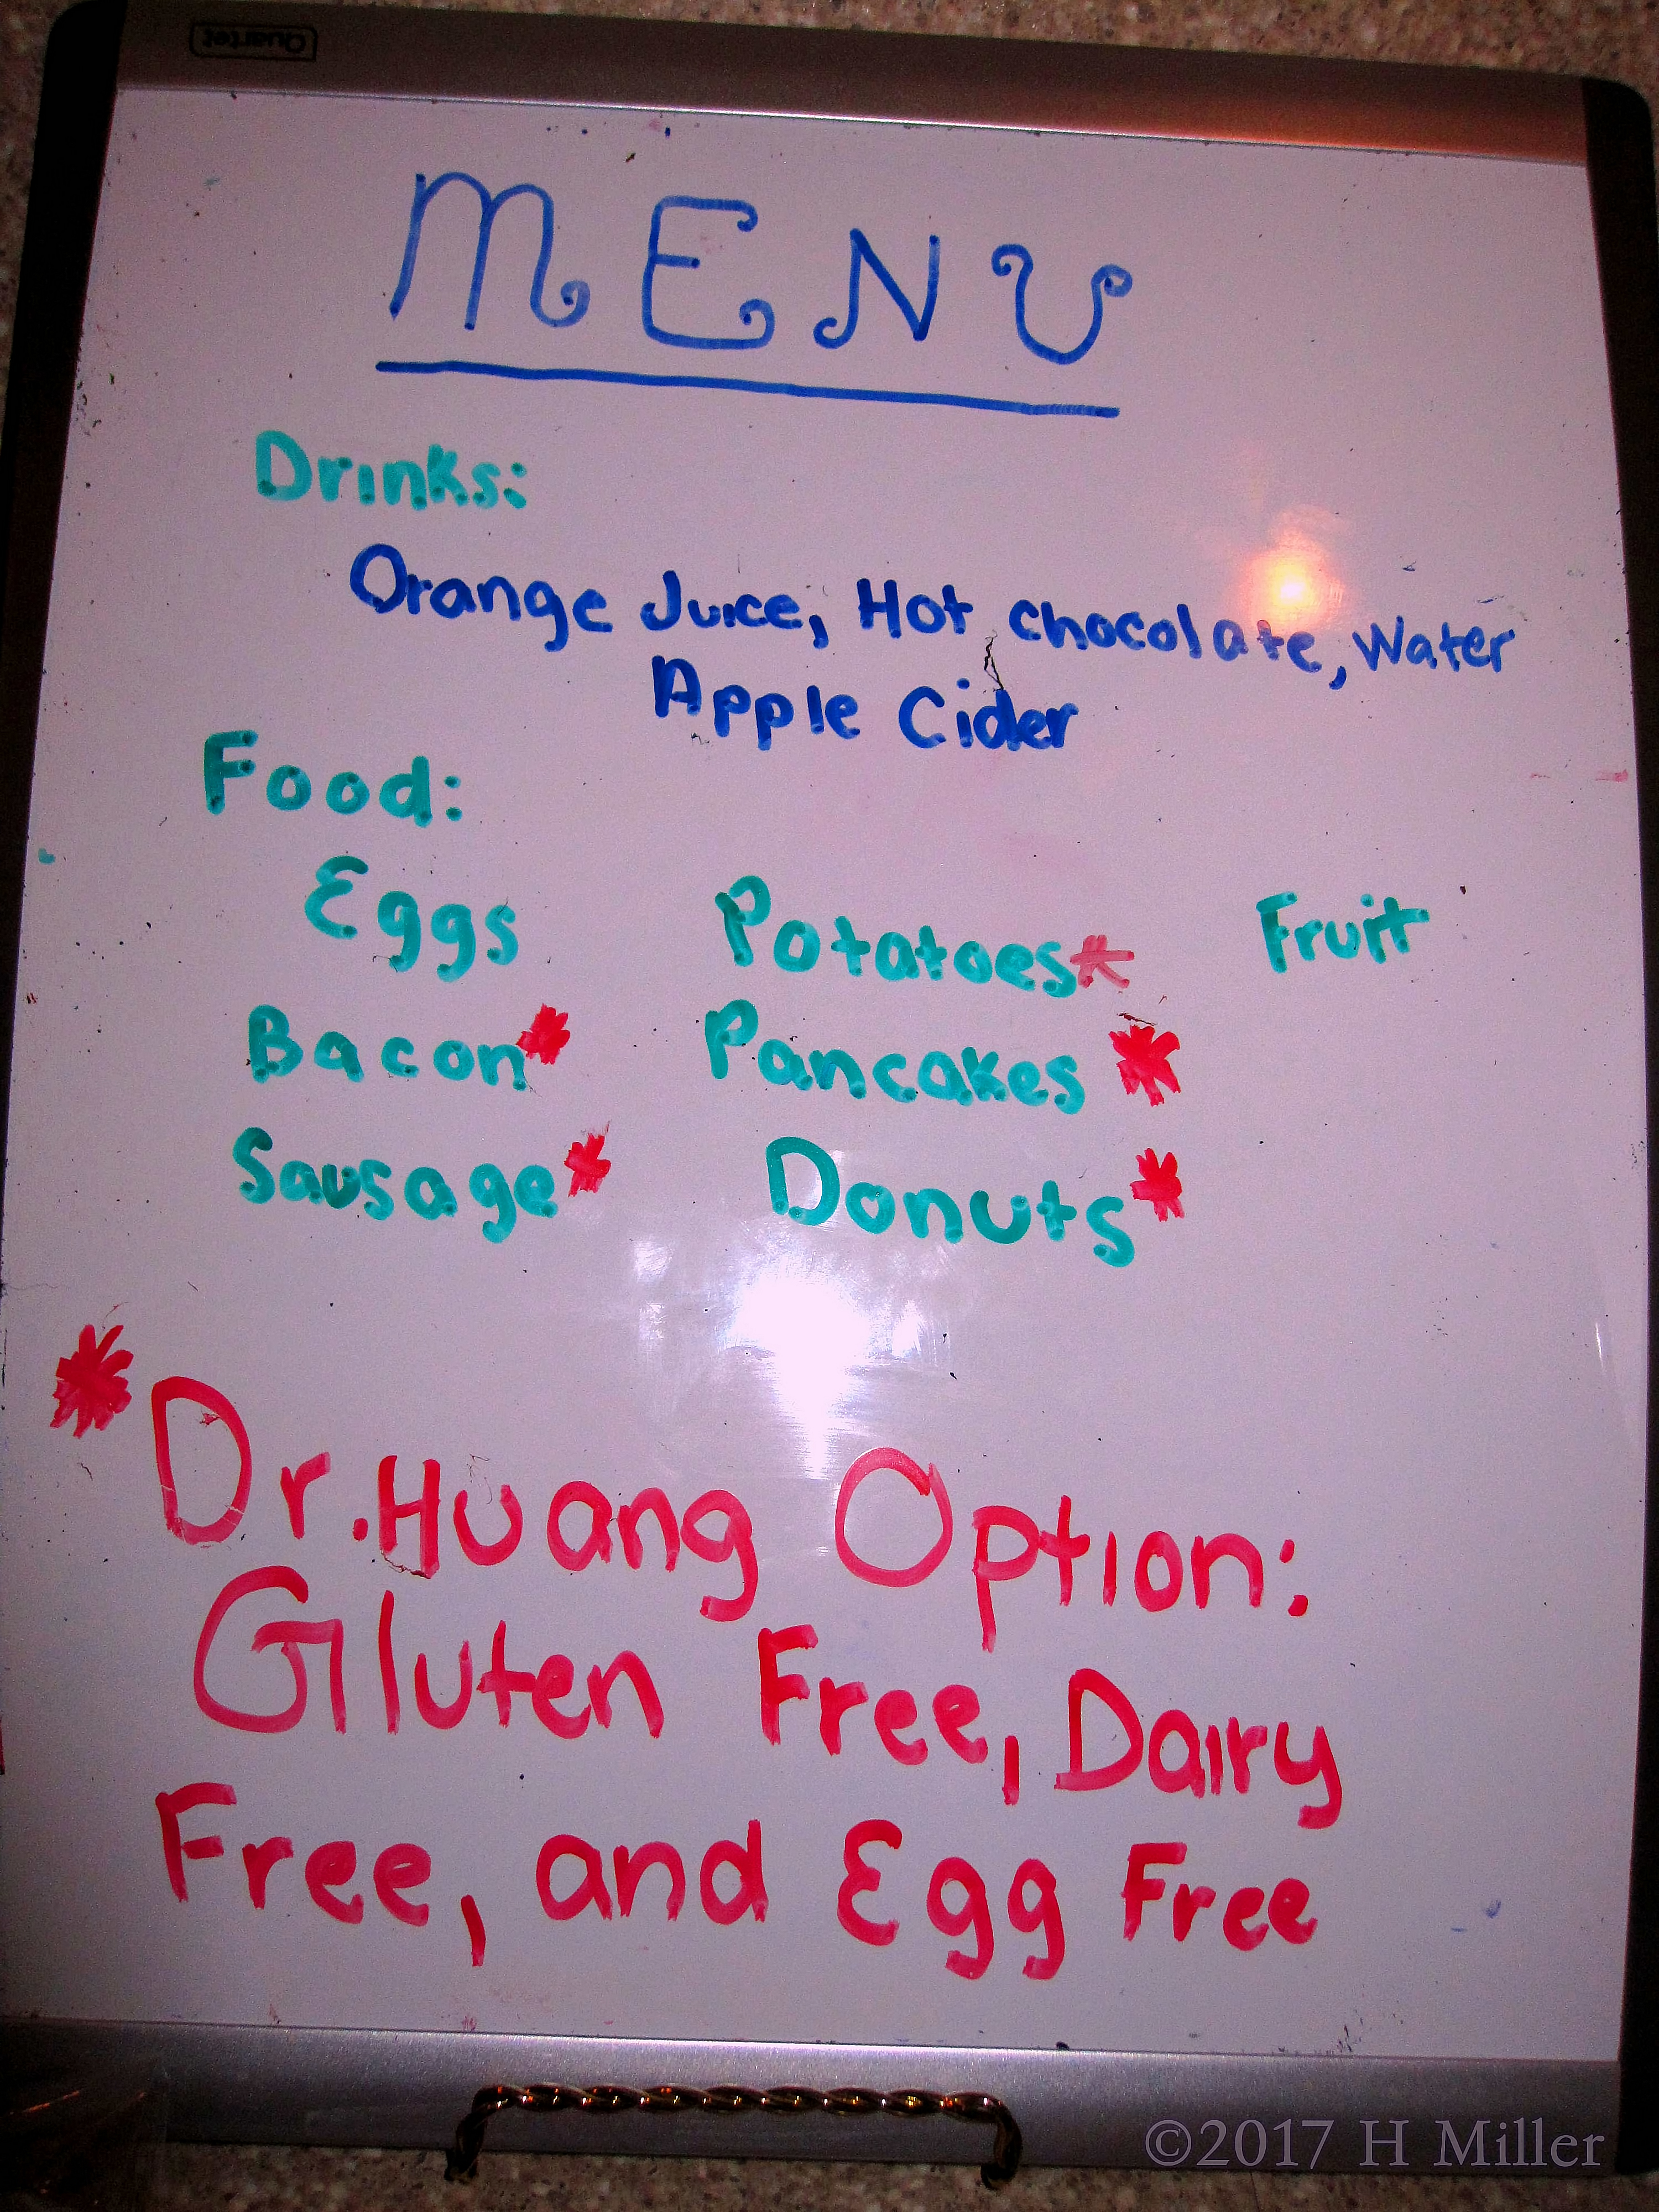 Quartet
MENU
Drinks:
Orange Juice, Hot chocolate, Water
Apple Cider
Food:
Eggs Potatoes* Fruit
Bacon* Pancakes *
Sausage* Donuts*
*Dr. Huang Option:
Gluten Free, Dairy
Free, and Egg Free
©2017 H Miller